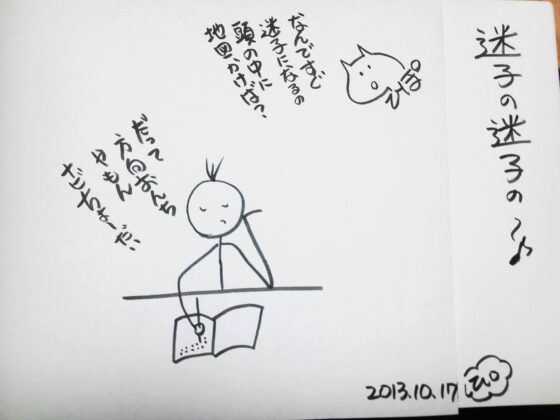 迷子の迷子の〜♪
なんですぐ
迷子になるの
頭の中に
地図かけば?
だって
方向おんち
やもん
2013.10.17